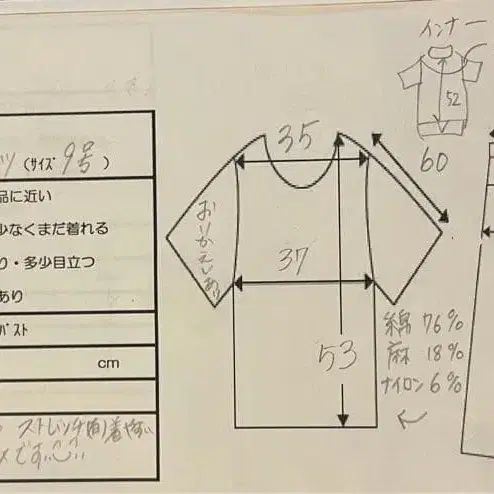 (サイズ 9号)
品に近い
少なくまだ着れる
り・多少目立つ
あり
バスト
cm
ストレッチ
です
インナー
52
60
35
おりかえしあり
37
53
綿 76%
麻 18%
ナイロン 6%